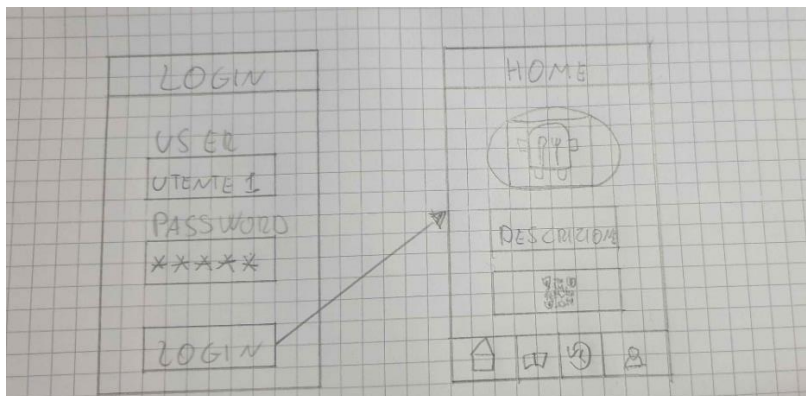 LOGIN
USER
UTENTE 1
PASSWORD
*****
LOGIN
HOME
DESCRIZIONE